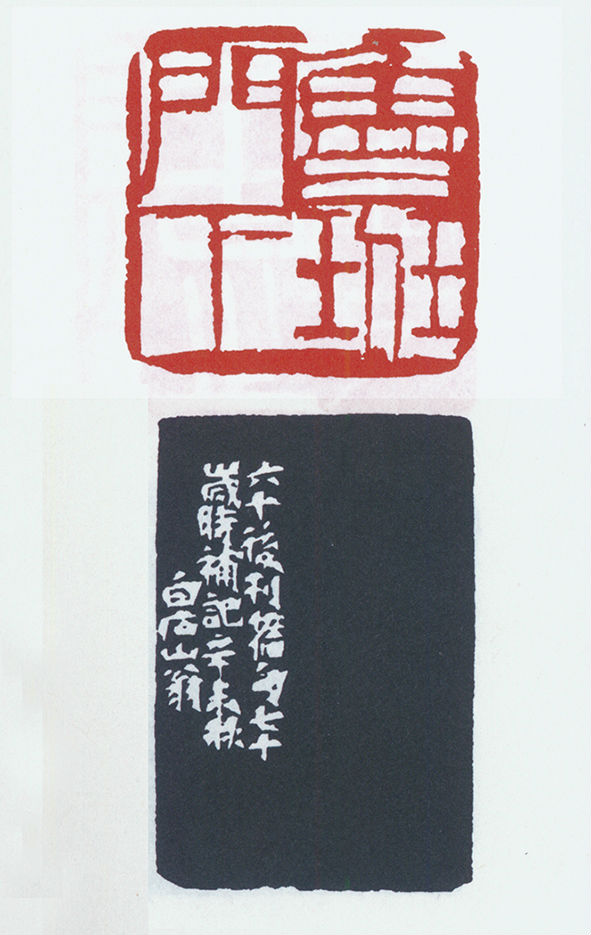 魯班
門下
六十後刊七十
歲時補記辛未秋
白石山翁